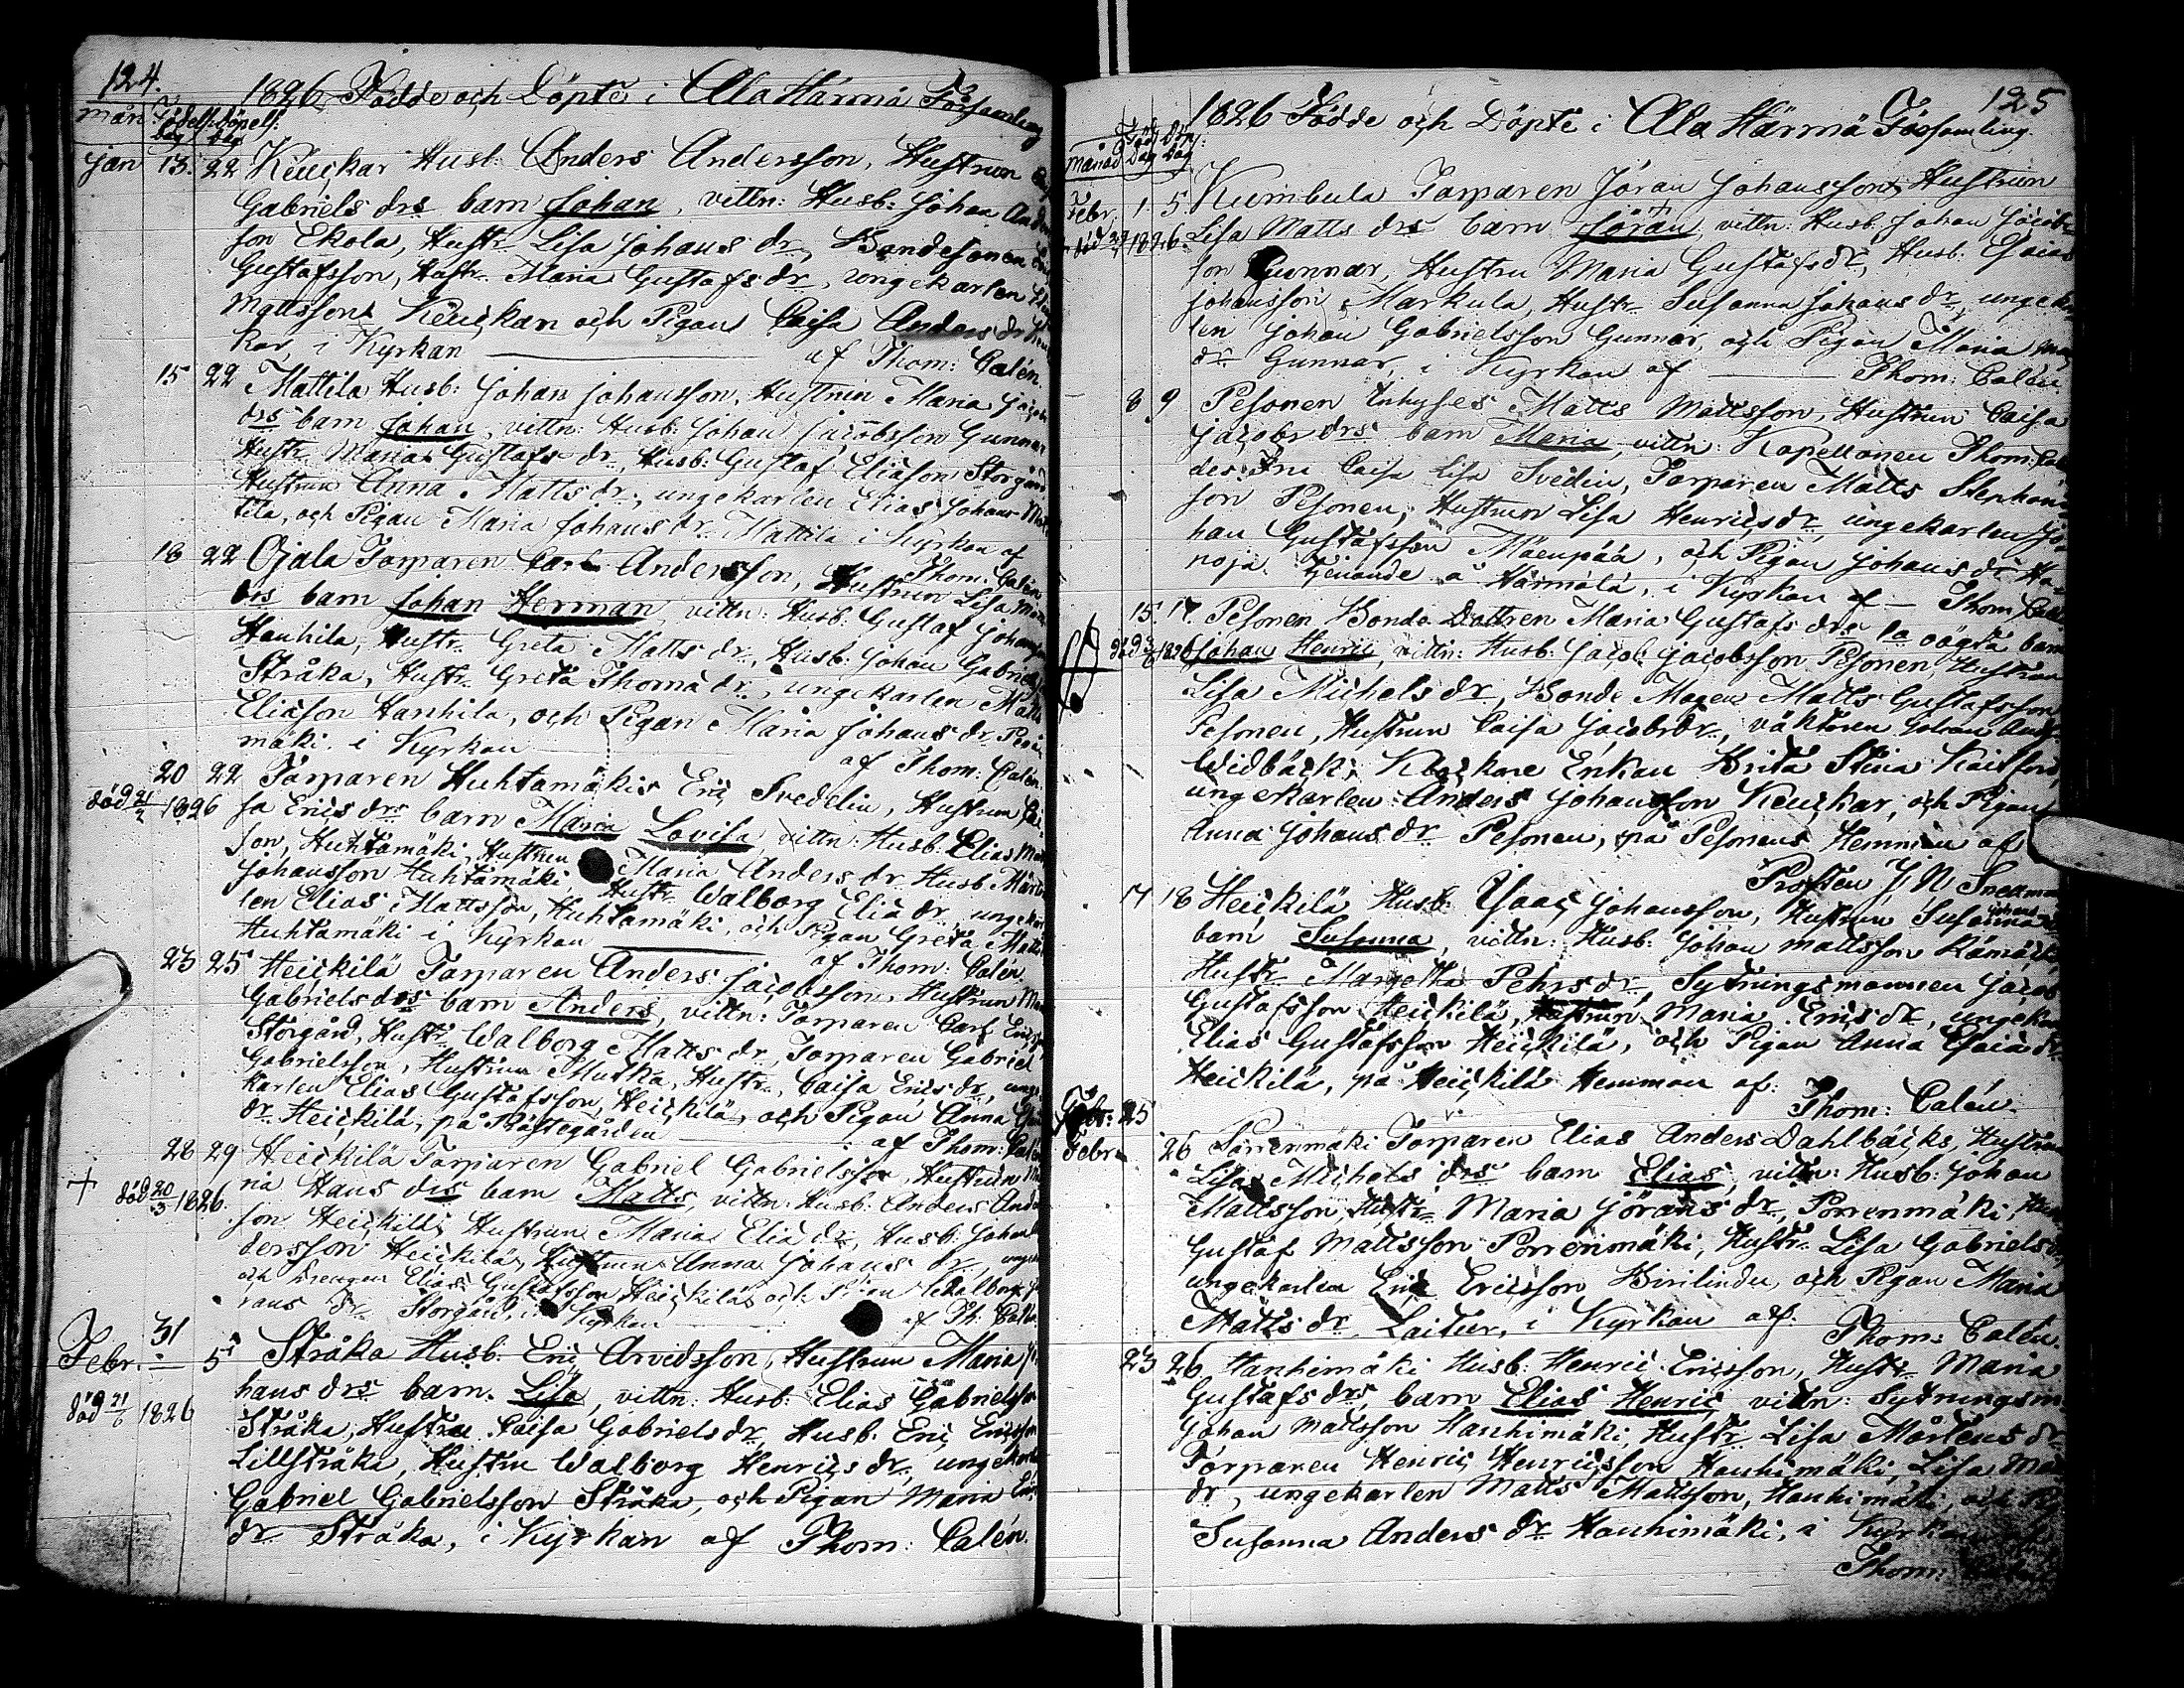 124.
1826 Födde och Döpte i Ala Härmä Församling
Mån: Födelse Döpels:
dag dag
Jan 13. 22 Keuckar Husb: Anders Andersson, Hustrun
Gabriels drs barn Johan, vittn: Husb: Johan Anders
son Ekola, Hustr. Lisa Johans dr, Bondesonen
Gustafsson, Hustr. Maria Gustafs dr, ungekarlen
Mattsson Keuckar och Pigan Caisa Anders dr
kar, i Kyrkan af Thom: Calén.
15 22 Mattila Husb: Johan Johansson, Hustrun Maria Jacobs
drs barn Johan, vittn: Husb: Johan Jacobsson Gunnar
Hustr. Maria Gustafs dr, Husb: Gustaf Eliasson Storgård
Hustrun Anna Matts dr, ungekarlen Elias Johans
tila, och Pigan Maria Johans dr Mattila i Kyrkan af
Thom: Calén
18 22 Ojala Torparen Carl Andersson, Hustrun Lisa
drs barn Johan Herman, vittn: Husb: Gustaf Johansson
Hanhila, Hustr. Greta Matts dr, Husb: Johan Gabriels
Stråka, Hustr. Greta Thoma dr, ungekarlen Matts
Eliason Hanhila, och Pigan Maria Johans dr
mäki, i Kyrkan af Thom: Calén.
20 22 Torparen Huhtamäkis Eric Svedelin, Hustrun Cai
död 21/2 1826 sa Erics drs barn Maria Lovisa, vittn: Husb: Elias
son, Huhtamäki, Hustrun Maria Anders dr Husb:
Johansson Huhtamäki, Hustr. Walborg Elia dr, ungekar
len Elias Mattsson, Huhtamäki, och Pigan Greta Matts
Huhtamäki i Kyrkan af Thom: Calén.
23 25 Heickilä Torparen Anders Jacobsson, Hustrun
Gabriels drs barn Anders, vittn: Torparen Carl
Storgård, Hustr. Walborg Matts dr, Torparen Gabriel
Gabrielsson, Hustrun Mutka, Hustr. Caisa Erics dr, unge
karlen Elias Gustafsson, Heickilä, och Pigan Anna
dr Heickilä, på Prästegården af Thom: Calén
28 29 Heickilä Torparen Gabriel Gabrielsson, Hustrun
+ död 20/3 1826. na Hans drs barn Matts, vittn: Husb: Anders Anders
son Heickilä, Hustrun Maria Elia dr, Husb: Johan
dersson Heickilä, Hustrun Anna Johans dr,
och Drengen Elias Gustafsson Heickilä och Pigan Walborg
rans dr Storgård, i Kyrkan af Th: Calén.
31
Febr. — 5 Stråka Husb: Eric Arvidsson, Hustrun Maria Jo
hans drs barn Lisa, vittn: Husb: Elias Gabrielsson
död 21/6 1826 Stråka, Hustru Caisa Gabriels dr Husb: Eric Ericsson
Lillstråka, Hustru Walborg Henrics dr, ungekarlen
Gabriel Gabrielsson Stråka, och Pigan Maria
dr Stråka, i Kyrkan af Thom: Calén.
125
1826 Födde och Döpte i Ala Härmä Församling.
Månad Föd: Döp:
Dag Dag
Febr. 1 5 Kumbula Torparen Jöran Johansson, Hustrun
1826. Lisa Matts drs barn Jöran, vittn: Husb: Johan Jacobs
son Gunnar, Hustru Maria Gustafs dr, Husb: Esaias
Johansson, Markula, Hustr. Susanna Johans dr, ungekar
len Johan Gabrielsson Gunnar, och Pigan Maria
dr Gunnar, i Kyrkan af Thom: Calén
8 9 Pesonen Inhyses Matts Mattsson, Hustrun Caisa
Jacobs drs barn Maria, vittn: Kapellanen Thom: Calén
des Fru Caisa Lisa Svedin, Torparen Matts Stephans
son Pesonen, Hustrun Lisa Henrics dr, ungekarlen Jo
han Gustafsson Mäenpää, och Pigan Johans dr
noja tjenande å Härmälä, i Kyrkan af — Thom: Calén
15. 17. Pesonen Bonde Dottren Maria Gustafs drs 1a oägta barn
1826 Johan Henric, vittn: Husb: Jacob Jacobsson Pesonen, Hustrun
Lisa Michels dr, Bonde Magen Matts Gustafsson
Pesonen, Hustrun Caisa Jacobs dr, väktaren Johan
Widbäck, Klockare Enkan Brita Stina
ungekarlen Anders Johansson Keuckar, och Pigan
Anna Johans dr Pesonen, på Pesonens Hemman af
Prosten J. N. Sneamm
17 18 Heickilä Husb: Isaac Johansson, Hustrun Susanna Johans
barn Susanna, vittn: Husb: Johan Mattsson Rämäck
Hustr. Margetha Pehrs dr, Sytningsmannen Jacob
Gustafsson Heickilä, Hustrun Maria Erics dr, ungekar
Elias Gustafsson Heickilä, och Pigan Anna Esaia dr
Heickilä, på Heickilä Hemman af Thom: Calén.
25
Febr. 26 Porrenmäki Torparen Elias Anders Dahlbäcks, Hustrun
Lisa Michels drs barn Elias, vittn: Husb: Johan
Mattsson, Hustr. Maria Jörans dr, Porrenmäki,
Gustaf Mattsson Porrenmäki, Hustr. Lisa Gabriels
ungekarlen Eric Ericsson, och Pigan Maria
Matts dr Laitur, i Kyrkan af. Thom: Calén.
23 26 Hanhimäki Husb: Henric Ericsson, Hustr. Maria
Gustafs drs barn Elias Henric, vittn: Sytningsm
Johan Mattsson Hanhimäki, Hustr. Lisa Mårtens dr
Torparen Henric Henricsson Hanhimäki, Lisa
dr, ungekarlen Matts Mattsson, Hanhimäki, och
Susanna Anders dr Hanhimäki, i Kyrkan
Thom: